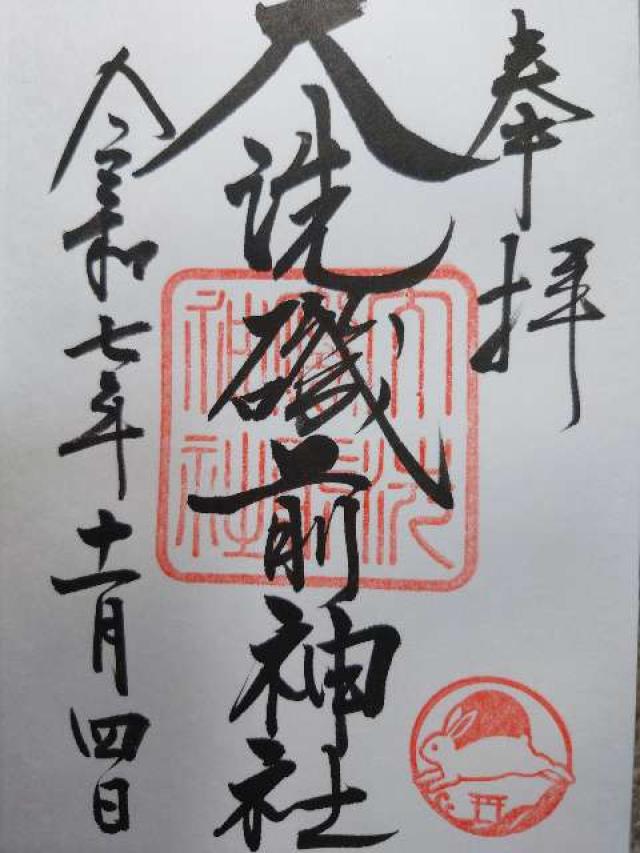 奉拝
大洗磯前神社
大洗磯前神社
令和七年十一月四日